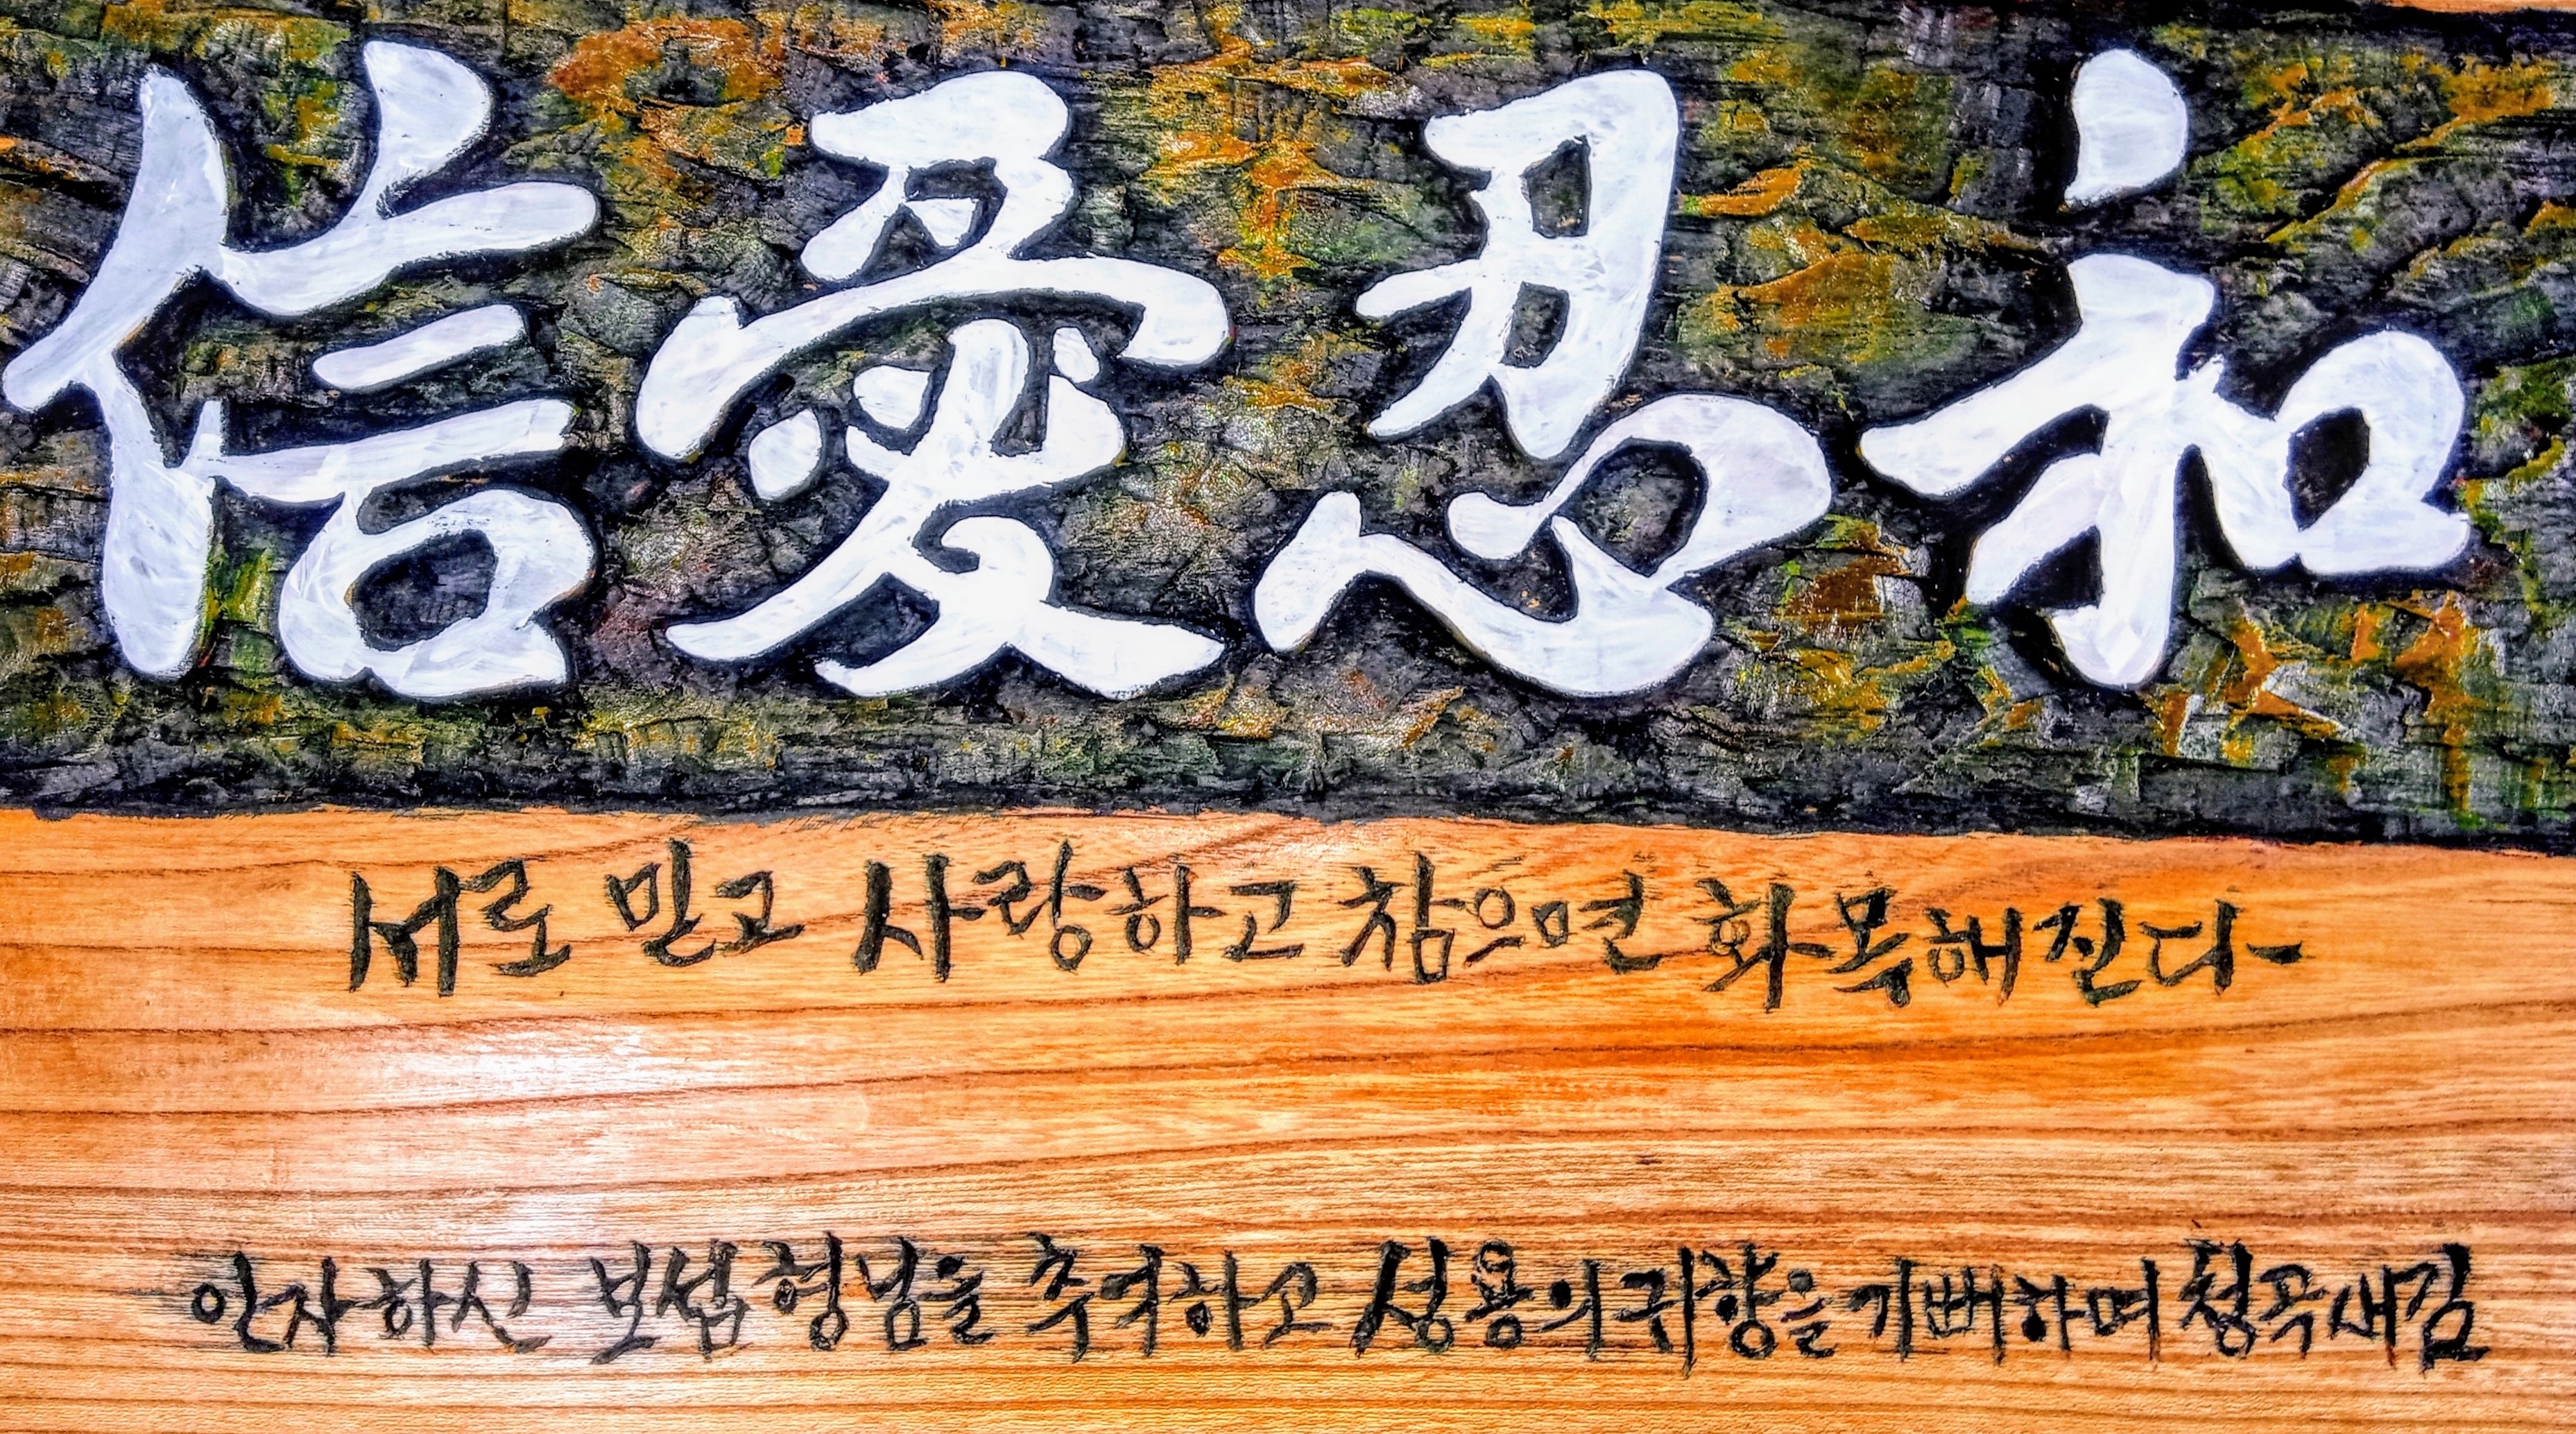 信愛忍和
서로 믿고 사랑하고 참으면 화목해진다
인자하신 보섭형님을 추억하고 성용의 귀향을 기뻐하며 청곡새김